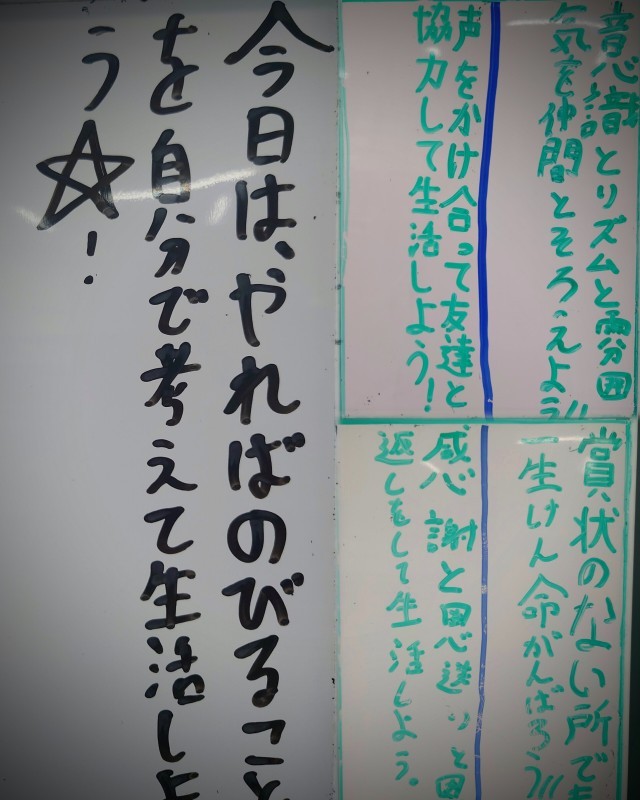 意識とリズムと雰囲
気を仲間とそろえよう!!
声をかけ合って友達と、
協力して生活しよう!
賞状のない所でも
一生けん命がんばろう!!
感謝と恩送りと恩
返しをして生活しよう。
今日は、やればのびること
を自分で考えて生活しよ
う☆!